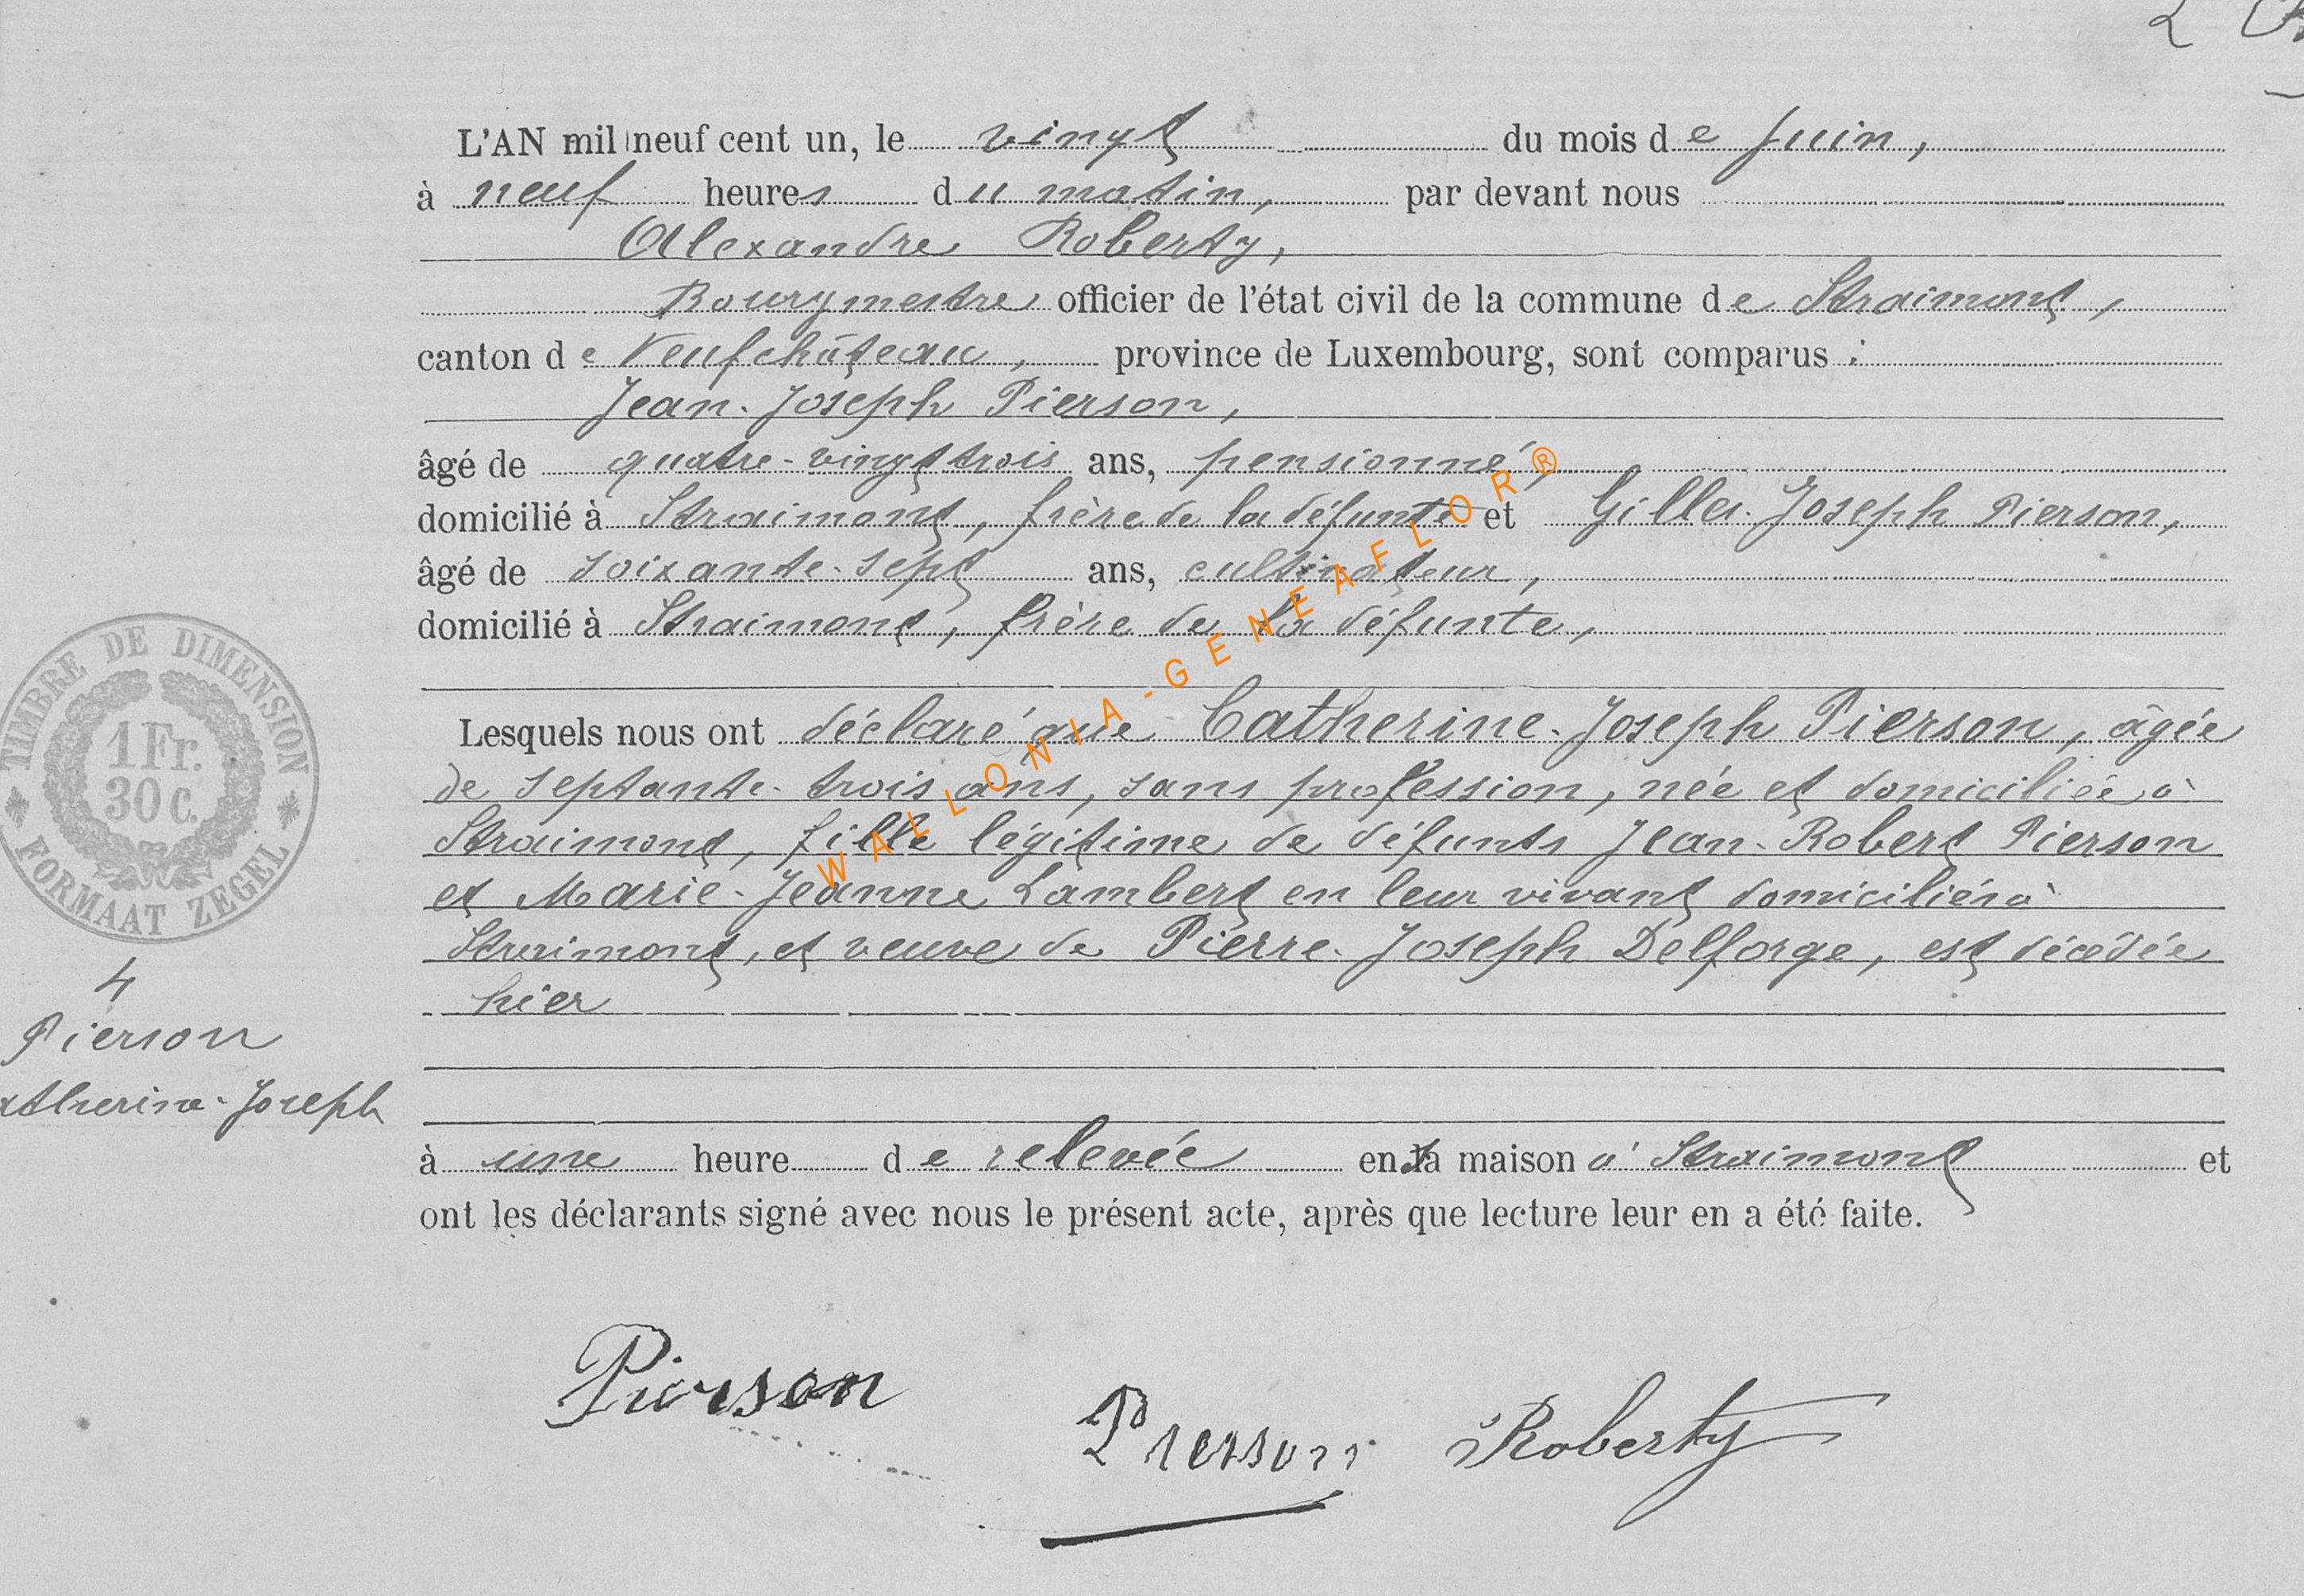 L'AN mil neuf cent un, le vingt du mois de Juin,
à neuf heures du matin, par devant nous
Alexandre Roberty,
Bourgmestre officier de l'état civil de la commune de Straimont,
canton de Neufchâteau, province de Luxembourg, sont comparus :
Jean-Joseph Pierson,
âgé de quatre-vingt trois ans, pensionné,
domicilié à Straimont, frère de la défunte et Gilles-Joseph Pierson,
âgé de soixante-sept ans, cultivateur,
domicilié à Straimont, frère de la défunte,
Lesquels nous ont déclaré que Catherine-Joseph Pierson, âgée
de septante-trois ans, sans profession, née et domiciliée à
Straimont, fille légitime de défunts Jean-Robert Pierson
et Marie-Jeanne Lambert en leur vivant domiciliés à
Straimont, et veuve de Pierre-Joseph Delforge, est décédée
hier
à une heure de relevée en sa maison à Straimont et
ont les déclarants signé avec nous le présent acte, après que lecture leur en a été faite.
Pierson
Pierson
Roberty
TIMBRE DE DIMENSION
1 Fr.
30 c.
FORMAAT ZEGEL
4
Pierson
atherine-Joseph
WALLONIA-GENEAFLOR®